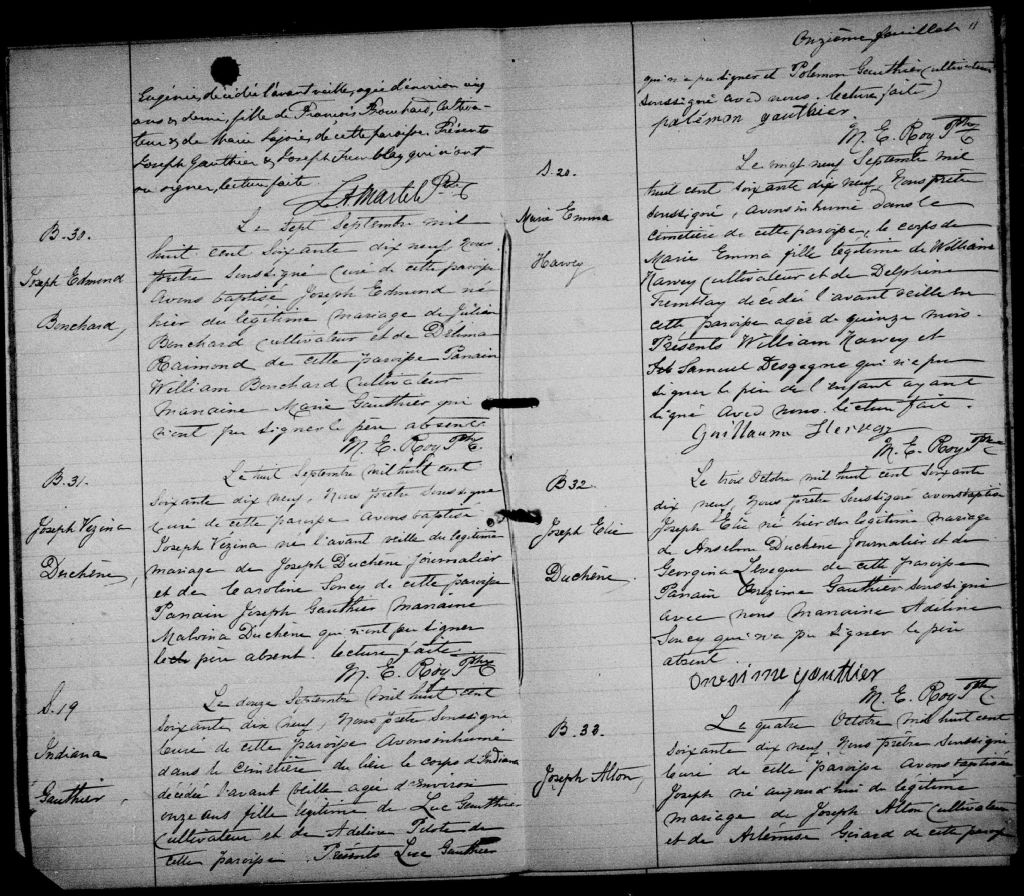 Eugénie, décédée l'avant veille, agée d'environ six
ans & demi, fille de François Bouchard, Cultiva-
teur & de Marie Lajoie, de cette paroisse. Présents
Joseph Gauthier & Joseph Tremblay qui n'ont
su signer, lecture faite.
Martel Ptre
B. 30.
Joseph Edmond
Bouchard,
Le Sept Septembre mil
huit cent Soixante dix neuf Nous
prêtre Soussigné Curé de cette paroisse
Avons baptisé Joseph Edmond né
hier du légitime mariage de Julien
Bouchard Cultivateur et de Delima
Raimond de cette paroisse Parrain
William Bouchard Cultivateur
Marraine Marie Gauthier qui
n'ont pu signer le père absent.
M. E. Roy Ptre
B. 31.
Joseph Vezina
Duchène,
Le huit Septembre mil huit cent
Soixante dix neuf, Nous prêtre Soussigné
Curé de cette paroisse avons baptisé
Joseph Vezina né l'avant veille du légitime
mariage de Joseph Duchène Journalier
et de Caroline Soucy de cette paroisse
Parrain Joseph Gauthier Marraine
Malvina Duchène qui n'ont pu signer
le père absent. lecture faite.
M. E. Roy Ptre
S. 19
Indiana
Gauthier,
Le douze Septembre mil huit cent
Soixante dix neuf, Nous prêtre Soussigné
Curé de cette paroisse Avons inhumé
dans le Cimetière du lieu le corps d'Indiana
décédée l'avant veille agée d'Environ
onze ans fille légitime de Luc Gauthier
Cultivateur et de Adeline Pilote de
cette paroisse. Présents Luc Gauthier
Onzième feuillet 11
qui n'a pu signer et Polemon Gauthier Cultivateur
Soussigné avec nous. lecture faite
palémon gauthier
M. E. Roy Ptre
S. 20.
Marie Emma
Harvey
Le vingt neuf Septembre mil
huit cent Soixante dix neuf, Nous prêtre
Soussigné, avons inhumé dans le
Cimetière de cette paroisse, le corps de
Marie Emma fille légitime de William
Harvey Cultivateur et de Delphine
Tremblay décédée l'avant veille en
cette paroisse agée de quinze mois.
Présents William Harvey et
Samuel Desgagné qui n'a pu
signer le père de l'enfant ayant
signé avec nous. lecture fait.
Guillaume Hervey
M. E. Roy Ptre
B 32.
Joseph Elie
Duchène.
Le trois Octobre mil huit cent Soixante
dix neuf, Nous prêtre Soussigné avons baptisé
Joseph Elie né hier du légitime mariage
d'Anselme Duchène Journalier et de
Georgina Leveque de cette paroisse
Parrain Onezime Gauthier Soussigné
avec nous Marraine Adeline
Soucy qui n'a pu signer le père
absent.
onesime gauttier
M. E. Roy Ptre
B. 33.
Joseph Alton,
Le quatre Octobre mil huit cent
Soixante dix neuf, Nous prêtre Soussigné
Curé de cette paroisse avons baptisé
Joseph né aujourd'hui de légitime
mariage de Joseph Alton Cultivateur
et de Artémise Girard de cette paroisse